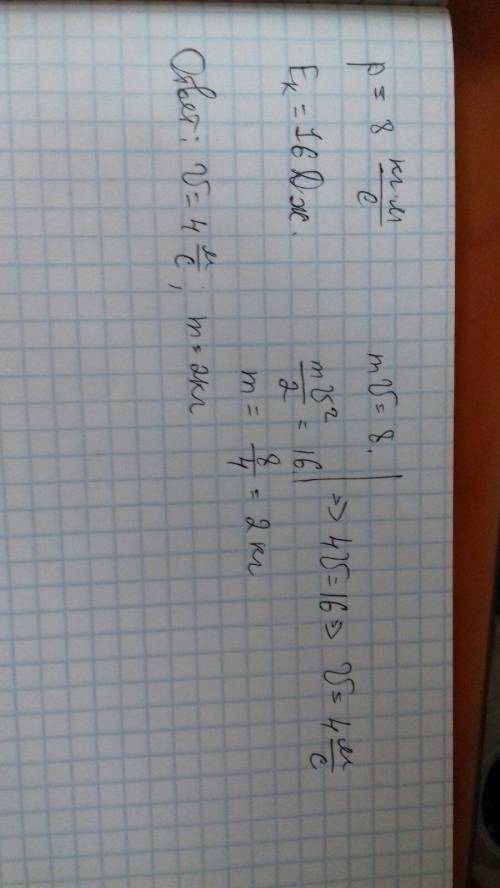 p = 8 кг·м/с
mV = 8.
Eк = 16 Дж.
mV²/2 = 16. | => 4V = 16 => V = 4 м/с
m = 8/4 = 2 кг
Ответ: V = 4 м/с; m = 2 кг